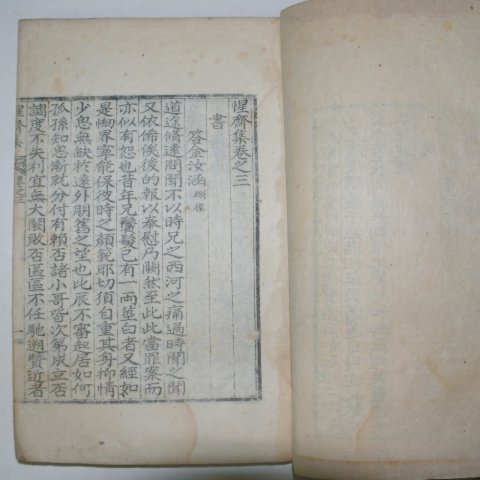 惺齋集卷之三
書
答金汝涵 㻶樸
道途修遠問聞不以時兄之西河之痛過時聞之聞
又依俙俟後的報以奉慰乃闕然至此此當罪案而
亦似有恕也昔年兄鬢髮已有一兩莖白者又經如
是㘭界寧能保彼時之顔範耶切須自重其身抑情
少思無缺於遠外朋舊之望也此辰不審起居如何
孤孫知思漸就分付有賴否諸小哥皆次第成立否
調度不失利宜無大關敗否區區不任馳遡贊近者
惺齋集
卷之三
一